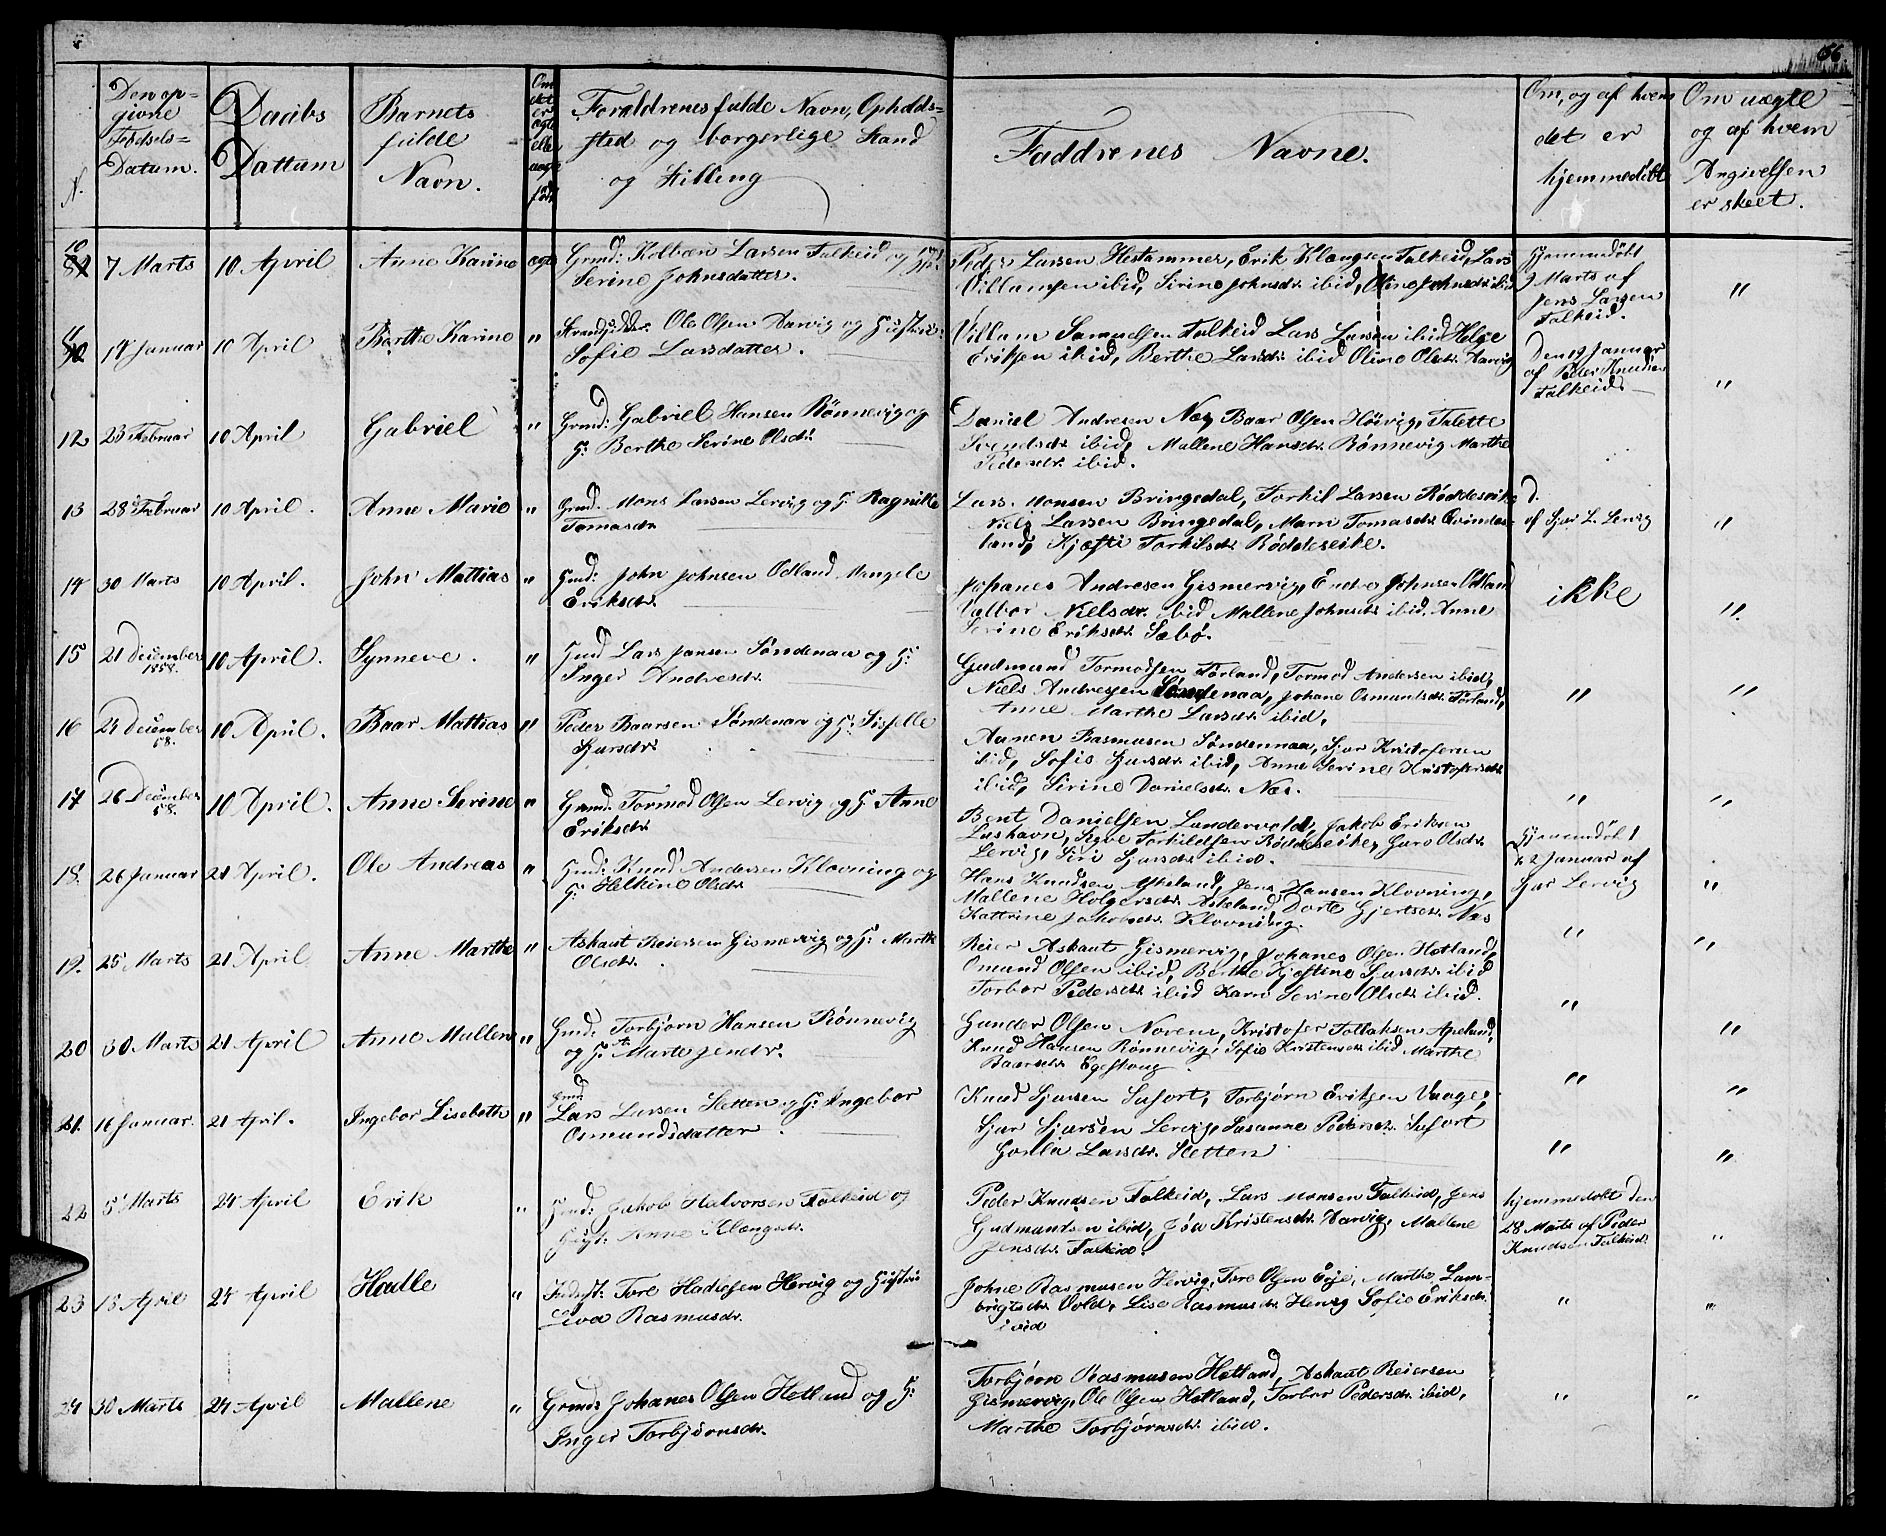 66
N.
Den op=
givne
Fødsels=
Datum.
Daabs
Dattum
Barnets
fulde
Navn.
Om
det
er
ægte
elle
uægte
født
Forældrenes fulde Navn, Opholds-
sted og borgerlige Stand
og Stilling
Faddrenes Navne.
Om, og af hvem
det er
hjemmedøbt
Om uægte
og af hvem
Angivelsen
er skeet.
10
7 Marts
10 April
Anne Karine
ægte
Grmd: Kolbæn Larsen Falkeid og
Serine Johnsdatter.
Peder Larsen Hestammer, Erik Klængsen Falkeid, Lars
Villamsen ibid, Sirine Johnsdr. ibid, Oline Johnsdr. ibid
Hjemmedøbt
9 Marts af
Jens Larsen
Falkeid.
"
11
14 Januar
10 April
Berthe Karine
"
Strandsidder: Ole Olsen Aarvig og Giftev:
Sofie Larsdatter.
Villam Samuelsen Falkeid Lars Larsen ibid Helge
Eriksen ibid, Berthe Larsdr. ibid Oline Olsdr. Aarvig
Den 19 Januar
af Peder Knudsen
Falkeid
"
12
23 Februar
10 April
Gabriel
"
Grmd: Gabriel Hansen Rønnevig og
G: Berthe Serine Olsdr.
Daniel Andresen Næs Baar Olsen Høivig, Talette
Svendsdr. ibid, Mallene Hansdr. Rønnevig Marthe
Pedersdr. ibid.
13
28 Februar
10 April.
Anne Marie
"
Grmd. Mons Larsen Lervig og G: Ragnille
Tomasdr.
Lars Monsen Bringedal, Torkil Larsen Røddeseike
Niels Larsen Bringedal, Marn Tomasdr. Qvindes-
land, Kjæsti Torkilsdr. Røddeseike.
d.
af Sjur L. Lervig
"
14
30 Marts
10 April.
John Mattias
"
Gmd: John Johnsen Odland Mangele
Eriksdr.
Johanes Andresen Gismervig, Endre Johnsen Odland
Valbor Nielsdr. ibid Mallene Johnsdr. ibid. Anne
Serine Eriksdr. Sæbø.
ikke
"
15
21 December
1858.
10 April.
Synneve.
"
Gmd Lars Jansen Søndenaa og G:
Inger Andresdr.
Gudmund Tormodsen Førland, Tormod Andersen ibid,
Niels Andresen Søndenaa, Johane Osmundsdr. Førland,
Anne Marthe Larsdr. ibid,
"
"
16
21 December
58.
10 April.
Baar Mattias
"
Peder Baarsen Søndenaa og G: Sisselle
Sjursdr.
Aanen Rasmusen Søndennaa, Sjur Kristofersen
ibid, Sofie Sjursdr. ibid, Anne Serine Kristofersdr.
ibid, Sirine Danielsdr. Næs.
"
"
17
26 December
58.
10 April.
Anne Serine
"
Grmd: Tormod Olsen Lervig og G Anne
Eriksdr.
Bent Danielsen Lundervold, Jakob Eriksen
Lushavn, Sigve Torkildsen Røddeseike, Guro Olsdr.
Lervig, Siri Sjursdr. ibid.
Hjemmedøbt
22 Januar af
Sjur Lervig
18.
26 Januar
21 April.
Ole Andreas
"
Gmd: Knud Andersen Klovning og
G: Helkine Olsdr.
Hans Knudsen Askeland, Jens Hansen Klovning,
Mallene Holgersdr. Askeland, Dorte Gjertsdr. Næs
Kattrine Jakobsdr. Klovning.
"
"
19.
25 Marts
21 April
Anne Marthe
"
Askaut Reiersen Gismervig og G: Marthe
Olsdr.
Reier Askaut Gismervig, Johanes Olsen Hetland,
Omund Olsen ibid, Berthe Kjestine Sjursdr. ibid
Torbor Pedersdr. ibid Karn Serine Olsdr. ibid.
"
"
20
30 Marts
21 April
Anne Mallene
"
Gmd: Torbjørn Hansen Rønnevig
og G: Marte Jensdr.
Gunder Olsen Norem, Kristofer Tollaksen Apeland,
Knud Hansen Rønnevig, Sofie Kristensdr. ibid Marthe
Baarsdr. Egeskoug.
"
"
21.
16 Januar.
21 April.
Ingebor Lisebeth
"
Gmd:
Lars Larsen Sletten og G: Ingebor
Osmundsdatter.
Knud Sjursen Susort, Torbjørn Eriksen Vaage,
Sjur Sjursen Lervig, Susanne Pedersdr. Susort
Gonla Larsdr. Sletten
"
"
22
5 Marts
24 April
Erik
"
Gmd: Jakob Halvorsen Falkeid og
Gift: Anne Klængsdr.
Peder Knudsen Falkeid, Lars Monsen Falkeid, Jens
Gudmundsen ibid, Jøa Kristensdr. Aarvig, Mallene
Jensdr. Falkeid.
hjemmedøbt den
28 Marts af Peder
Knudsen Falkeid.
"
23
15 April
24 April
Hadle
"
Indst: Tore Hadlesen Hervig og Giftev
Siva Rasmusdr.
Johne Rasmusen Hervig, Tore Olsen Eeje, Marthe Lam-
brigtsdr. Vold, Lise Rasmusdr. Hervig Sofie Eriksdr.
ibid
"
"
24
30 Marts
24 April
Mallene
"
Grmd: Johanes Olsen Hetland og G:
Inger Torbjørnsdr.
Torbjørn Rasmusen Hetland, Askaut Reiersen
Gismervig, Ole Olsen Hetland, Torbor Pedersdr. ibid,
Marthe Torbjørnsdr. ibid.
"
"